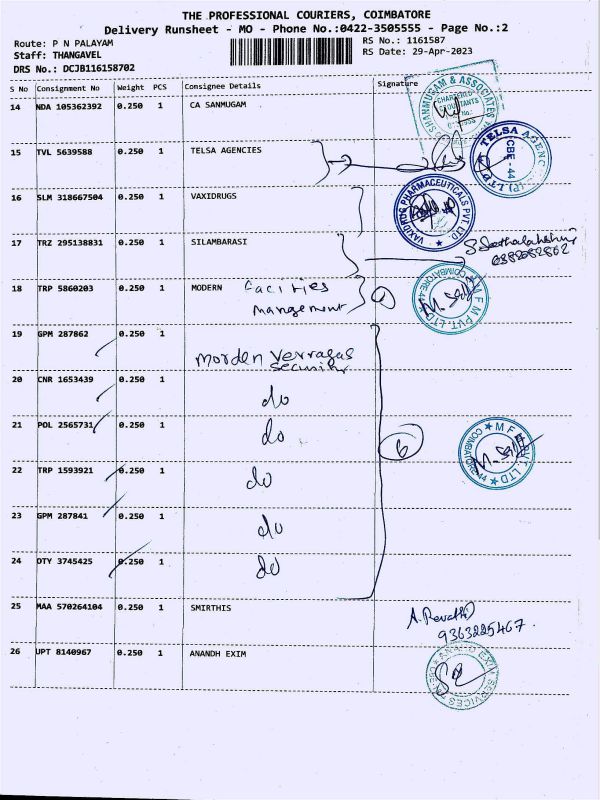 THE PROFESSIONAL COURIERS, COIMBATORE
Delivery Runsheet - MO - Phone No.:0422-3505555 - Page No.:2
Route: P N PALAYAM
RS No.: 1161587
Staff: THANGAVEL
RS Date: 29-Apr-2023
DRS No.: DCJB116158702
S No Consignment No Weight PCS Consignee Details Signature
14 NDA 105362392 0.250 1 CA SANMUGAM
SHANMUGAM & ASSOCIATES
CHARTERED
ACCOUNTANTS
15 TVL 5639588 0.250 1 TELSA AGENCIES
TELSA AGENC (P) LTD
CBE - 44
16 SLM 318667504 0.250 1 VAXIDRUGS
VAXIDRUG PHARMACEUTICALS PVT. LTD
17 TRZ 295138831 0.250 1 SILAMBARASI
18 TRP 5860203 0.250 1 MODERN Facities
Mangement
M F M PVT. LTD
COIMBATORE-44
19 GPM 287862 0.250 1
morden verragas
security
20 CNR 1653439 0.250 1 do
21 POL 2565731 0.250 1 do
6
M F M PVT. LTD
COIMBATORE-44
22 TRP 1593921 0.250 1 do
23 GPM 287841 0.250 1 do
24 OTY 3745425 0.250 1 do
25 MAA 570264104 0.250 1 SMIRTHIS
A. Revathi
9363225467.
26 UPT 8140967 0.250 1 ANANDH EXIM
ANAND EXIM SERVICES